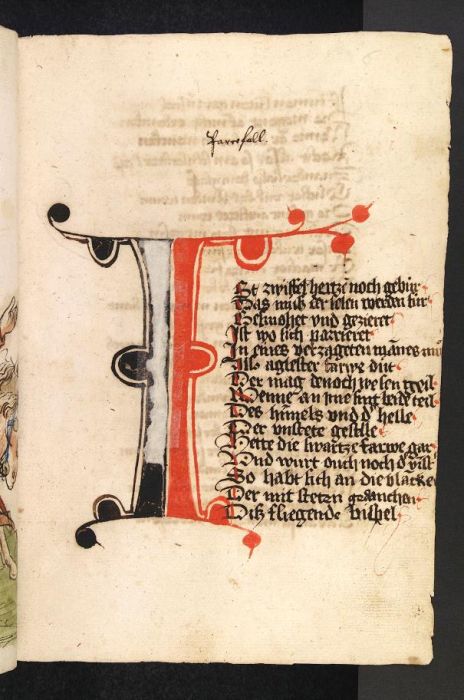 Parcefall
I
St zwiffel hertzē noch gebūr
Das muß der selen werden sur
Gesmohet vnd gezieret
Ist wo sich parrieret
In eines verzageten mānes mū
Also aglester farwe dūt
Der mag denoch wesen geil
Wenne an ime sint beide teil
Des himels vnd d' helle
Der vnstete geselle
Hette die swartze farwe gar
Vnd wurt ouch noch d'
So habt sich an die blacke
Der mit steten gedancken
Diß fliegende bischel